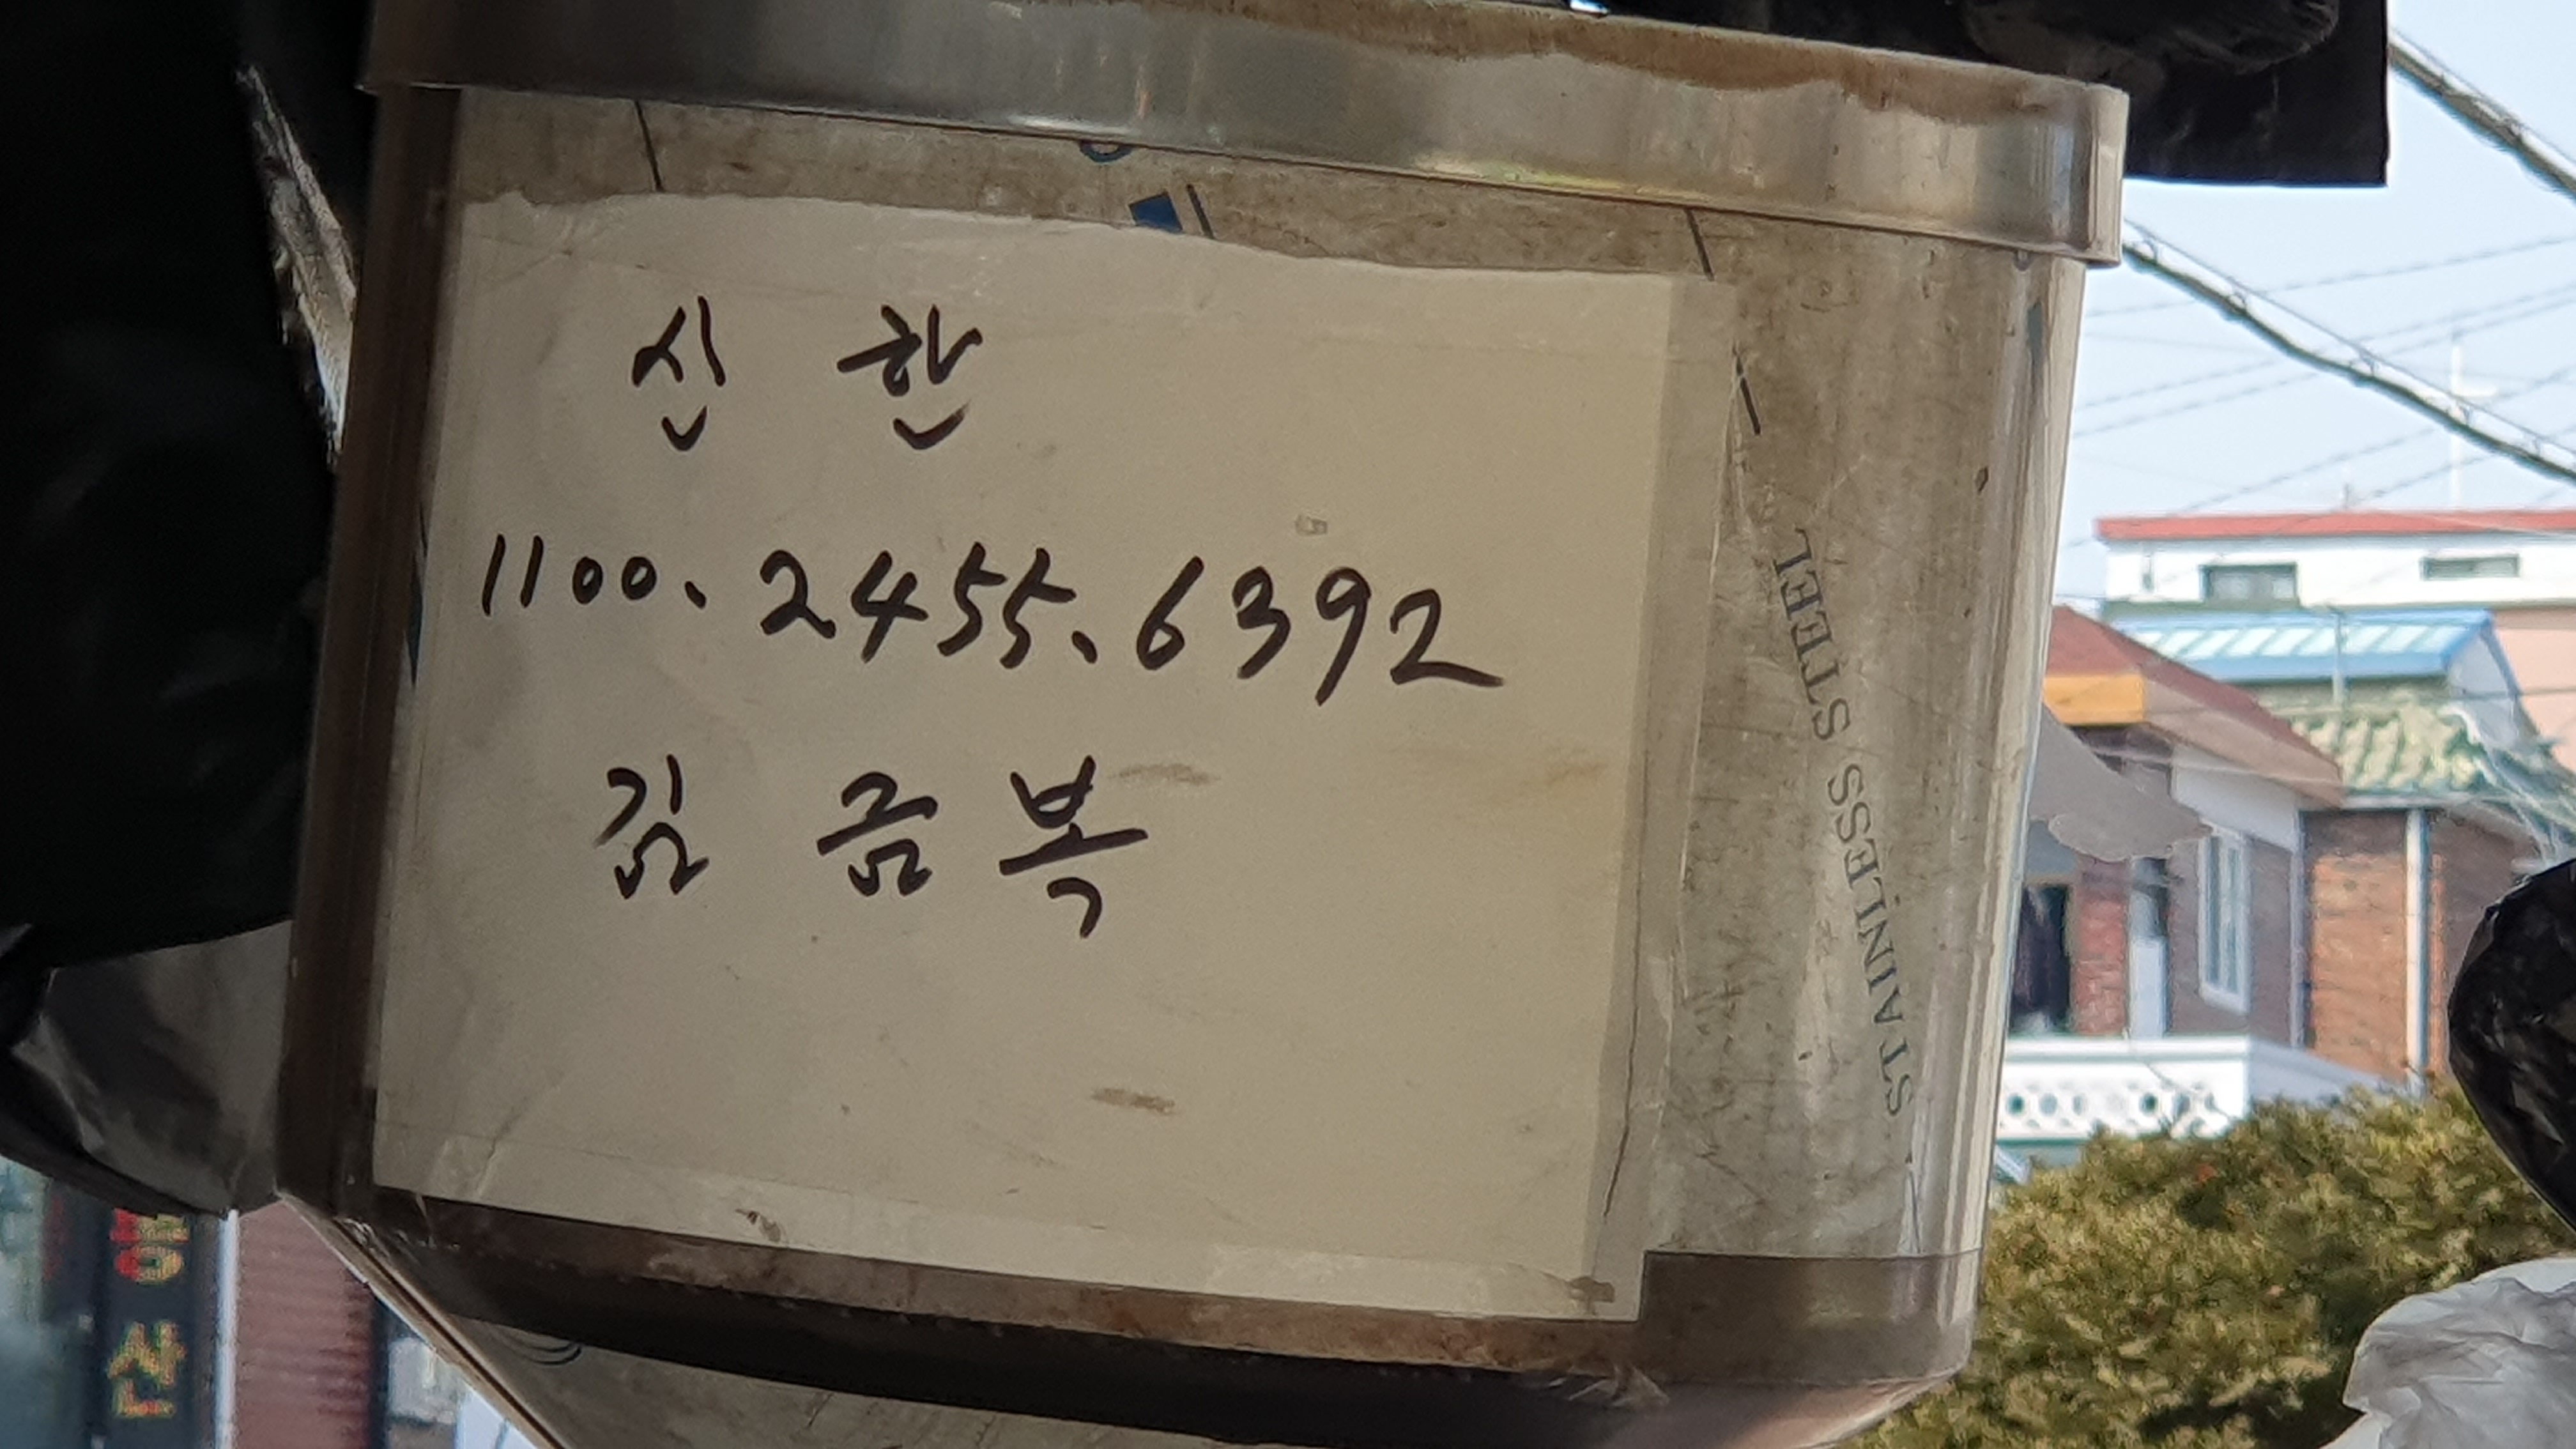 신 한
1100. 2455. 6392
김 금 복
STAINLESS STEEL
산